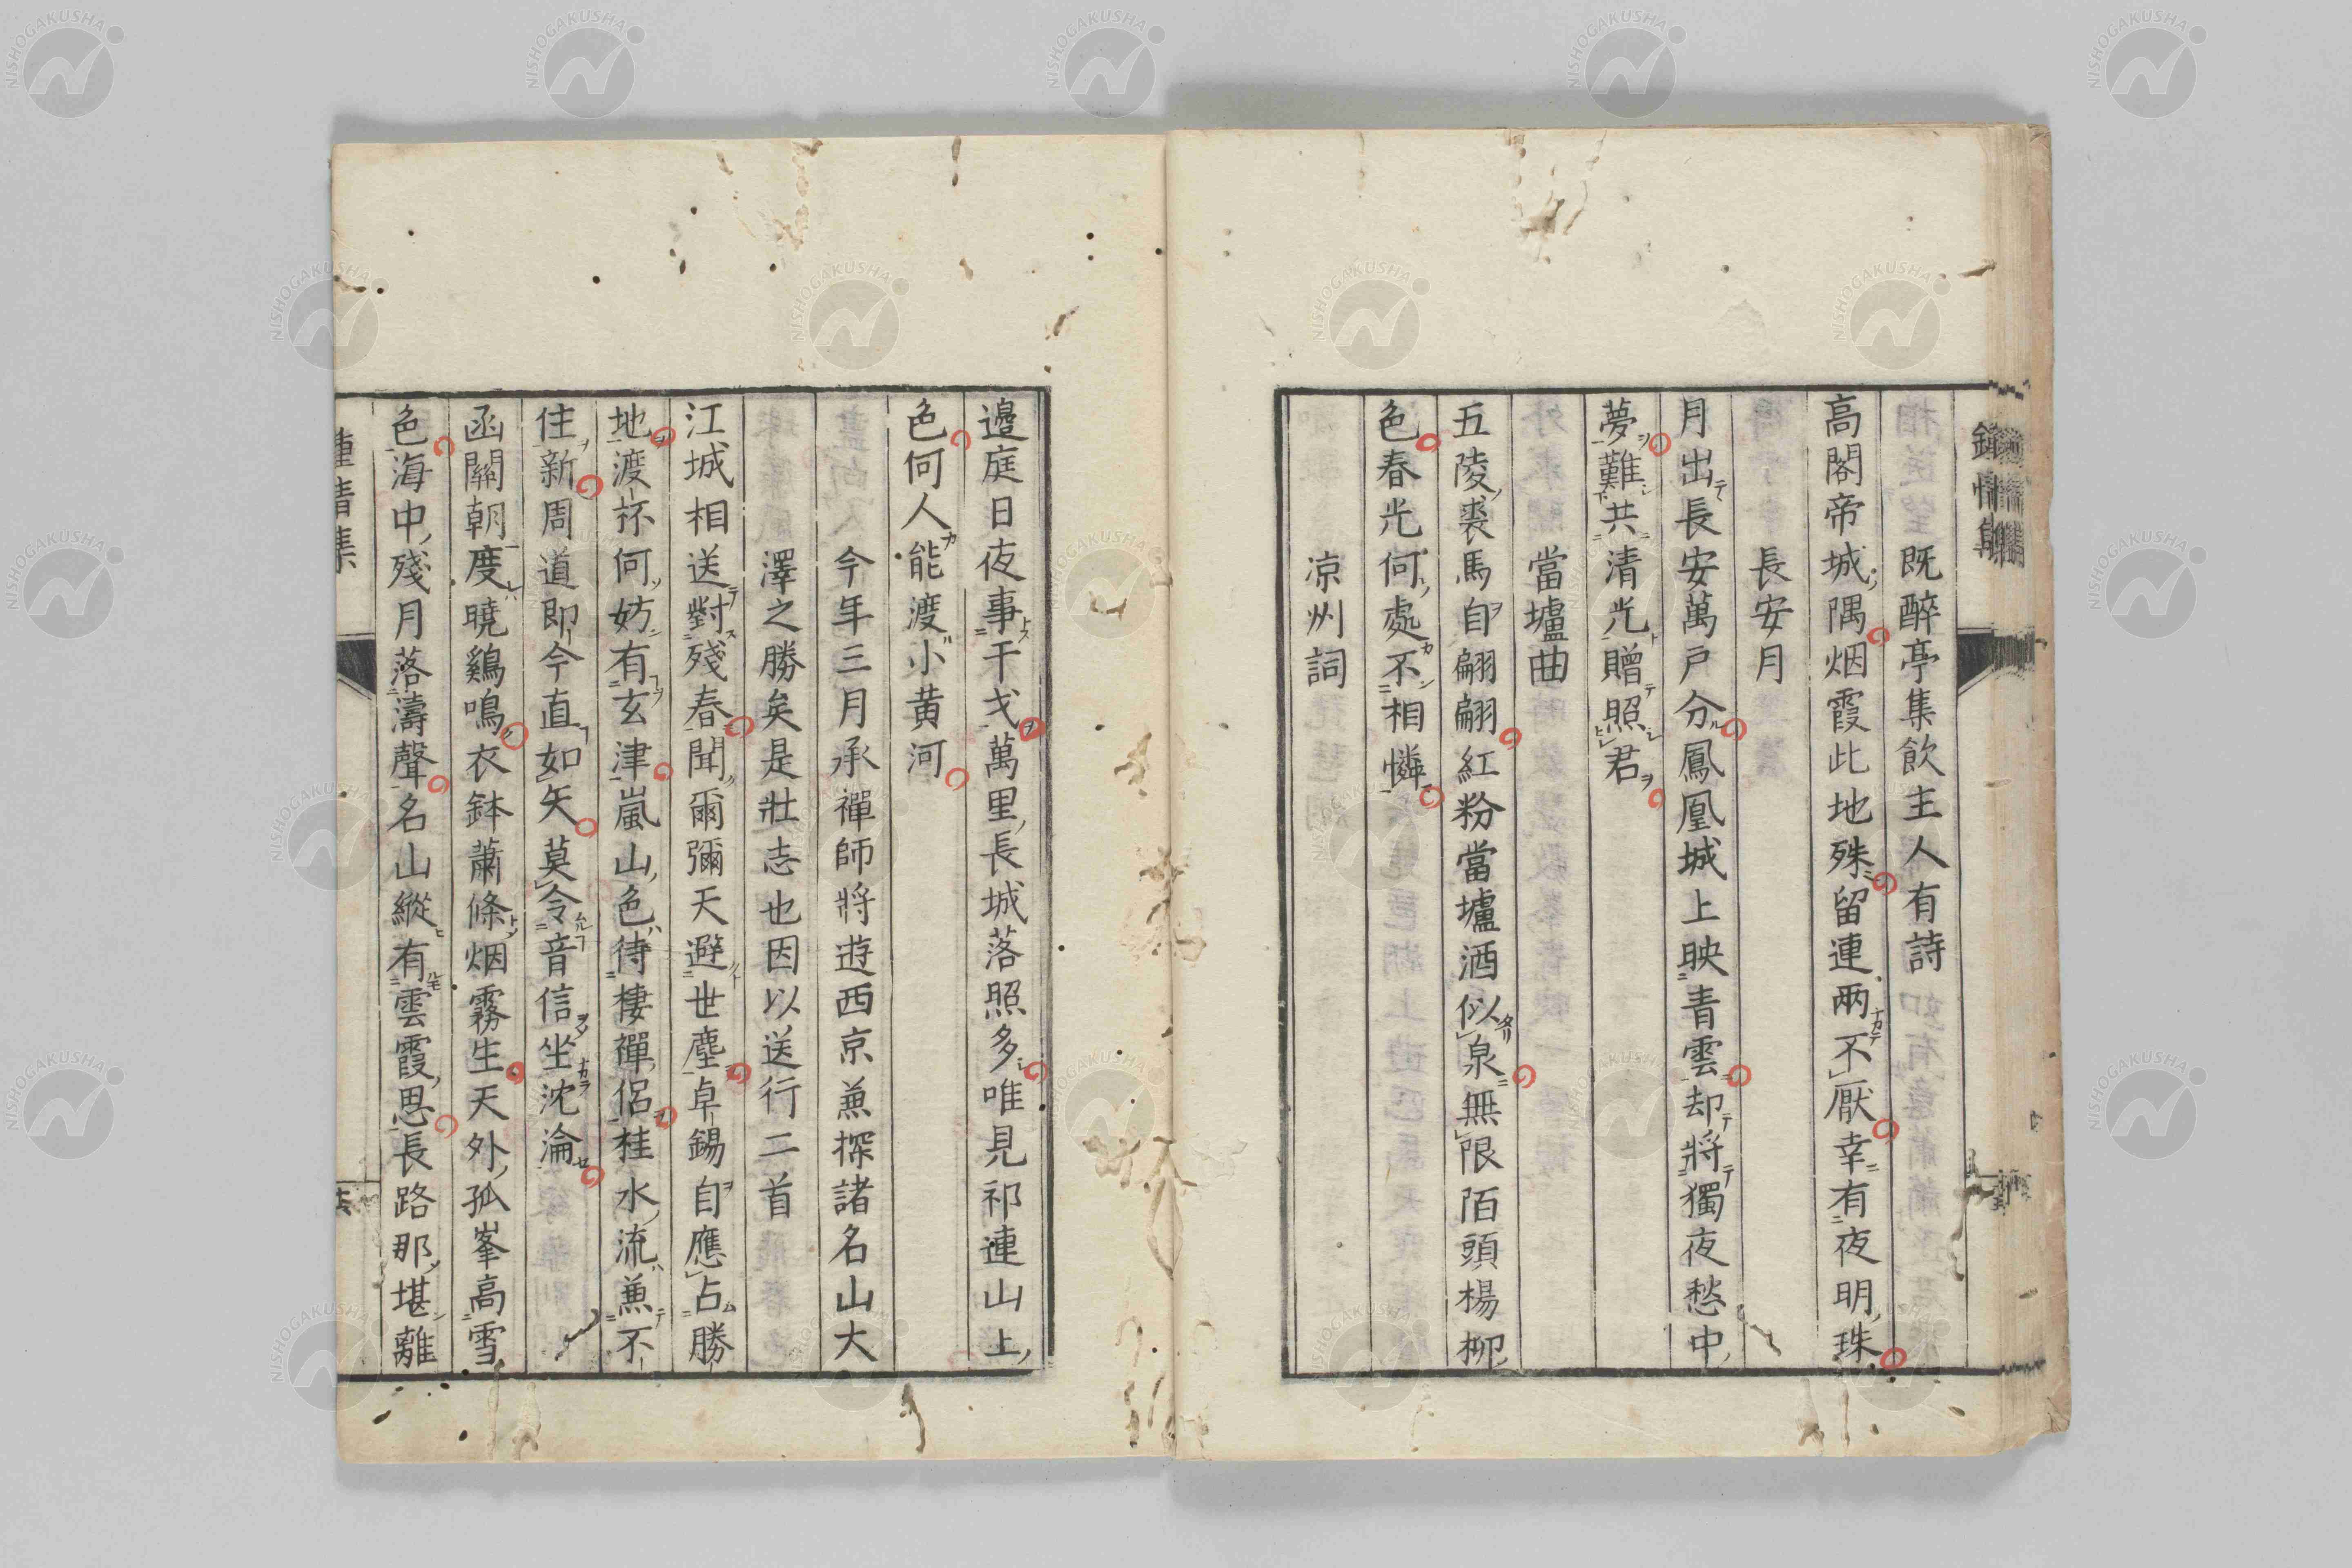 既醉亭集飲主人有詩
高閣帝城隅烟霞此地殊留連兩不厭幸有夜明珠
長安月
月出長安萬戶分鳳凰城上映青雲却將獨夜愁中
夢難共清光贈照君
當壚曲
五陵裘馬自翩翩紅粉當壚酒似泉無限陌頭楊柳
色春光何處不相憐
凉州詞
邊庭日夜事干戈萬里長城落照多唯見祁連山上
色何人能渡小黄河
今年三月承禪師將遊西京兼探諸名山大
澤之勝矣是壯志也因以送行二首
江城相送對殘春聞爾彌天避世塵卓錫自應占勝
地渡杯何妨有玄津嵐山色待棲禪侶桂水流兼不
住新周道即今直如矢莫令音信坐沈淪
函關朝度曉鷄鳴衣鉢蕭條烟霧生天外孤峯高雪
色海中殘月落濤聲名山縱有雲霞思長路那堪離
鍾情集
NISHOGAKUSHA